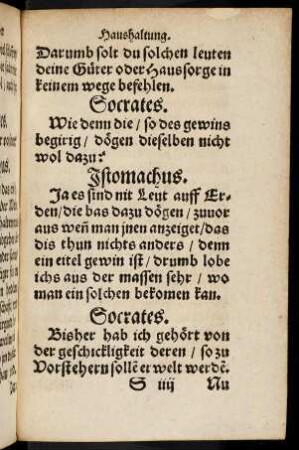 Haushaltung.
Darumb solt du solchen leuten
deine Güter oder Haussorge in
keinem wege befehlen.
Socrates.
Wie denn die / so des gewins
begirig / dögen dieselben nicht
wol dazu?
Istomachus.
Ja es sind nit Leut auff Er-
den / die bas dazu dögen / zuuor
aus weñ man jnen anzeiget / das
dis thun nichts anders / denn
ein eitel gewin ist / drumb lobe
ichs aus der massen sehr / wo
man ein solchen bekomen kan.
Socrates.
Bisher hab ich gehört von
der geschickligkeit deren / so zu
Vorstehern sollẽ erwelt werdẽ.
S iiij Nu